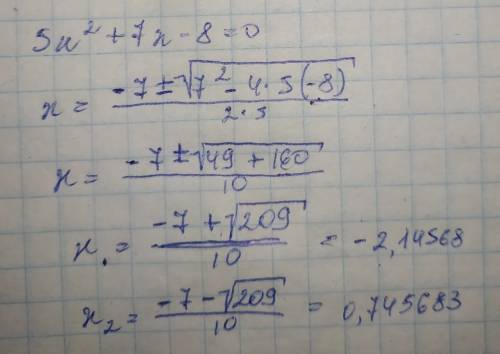 5x² + 7x - 8 = 0
x = (-7 ± √(7² - 4·5(-8))) / (2·5)
x = (-7 ± √(49 + 160)) / 10
x. = (-7 + √209) / 10 = -2,14568
x₂ = (-7 - √209) / 10 = 0,745683